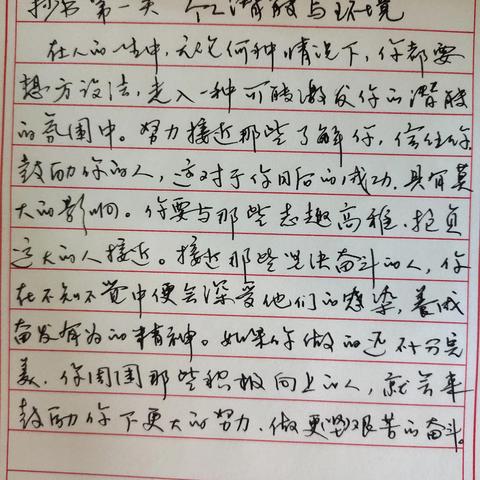 抄书第一天 个人潜能与环境
在人的一生中,无论何种情况下,你都要
想方设法,走入一种可能激发你的潜能
的氛围中。努力接近那些了解你,信任你
鼓励你的人,这对于你日后的成功,具有莫
大的影响。你要与那些志趣高雅、抱负
远大的人接近。接近那些坚决奋斗的人,你
在不知不觉中便会深受他们的感染,养成
奋发有为的精神。如果你做的还不十分完
美,你周围那些积极向上的人,就会来
鼓励你下更大的努力,做更坚艰苦的奋斗。